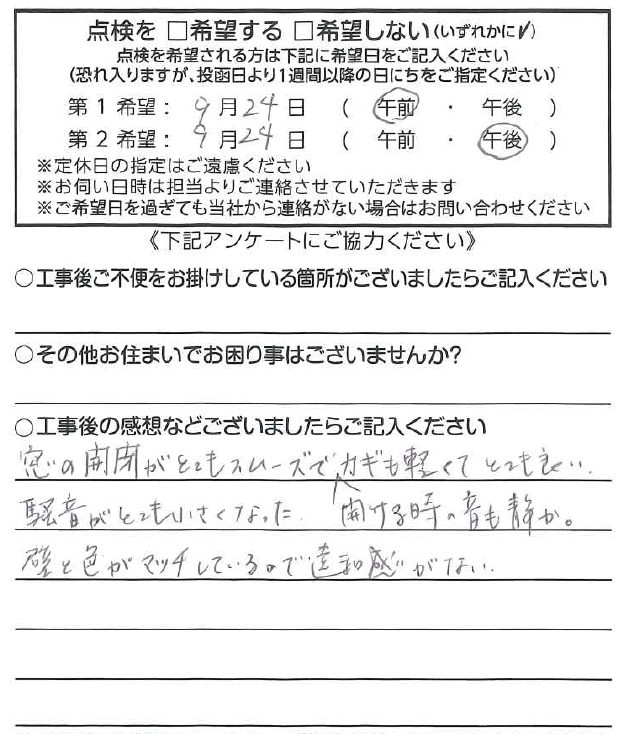 点検を □希望する □希望しない(いずれかに✓)
点検を希望される方は下記に希望日をご記入ください
(恐れ入りますが、投函日より1週間以降の日にちをご指定ください)
第1希望： 9月24日 ( 午前 ・ 午後 )
第2希望： 9月24日 ( 午前 ・ 午後 )
※定休日の指定はご遠慮ください
※お伺い日時は担当よりご連絡させていただきます
※ご希望日を過ぎても当社から連絡がない場合はお問い合わせください
《下記アンケートにご協力ください》
○工事後ご不便をお掛けしている箇所がございましたらご記入ください
○その他お住まいでお困り事はございませんか?
○工事後の感想などございましたらご記入ください
窓の開閉がとてもスムーズでカギも軽くてとても良い.
騒音がとても小さくなった. 開ける時の音も静か。
壁と色がマッチしているので違和感がない.